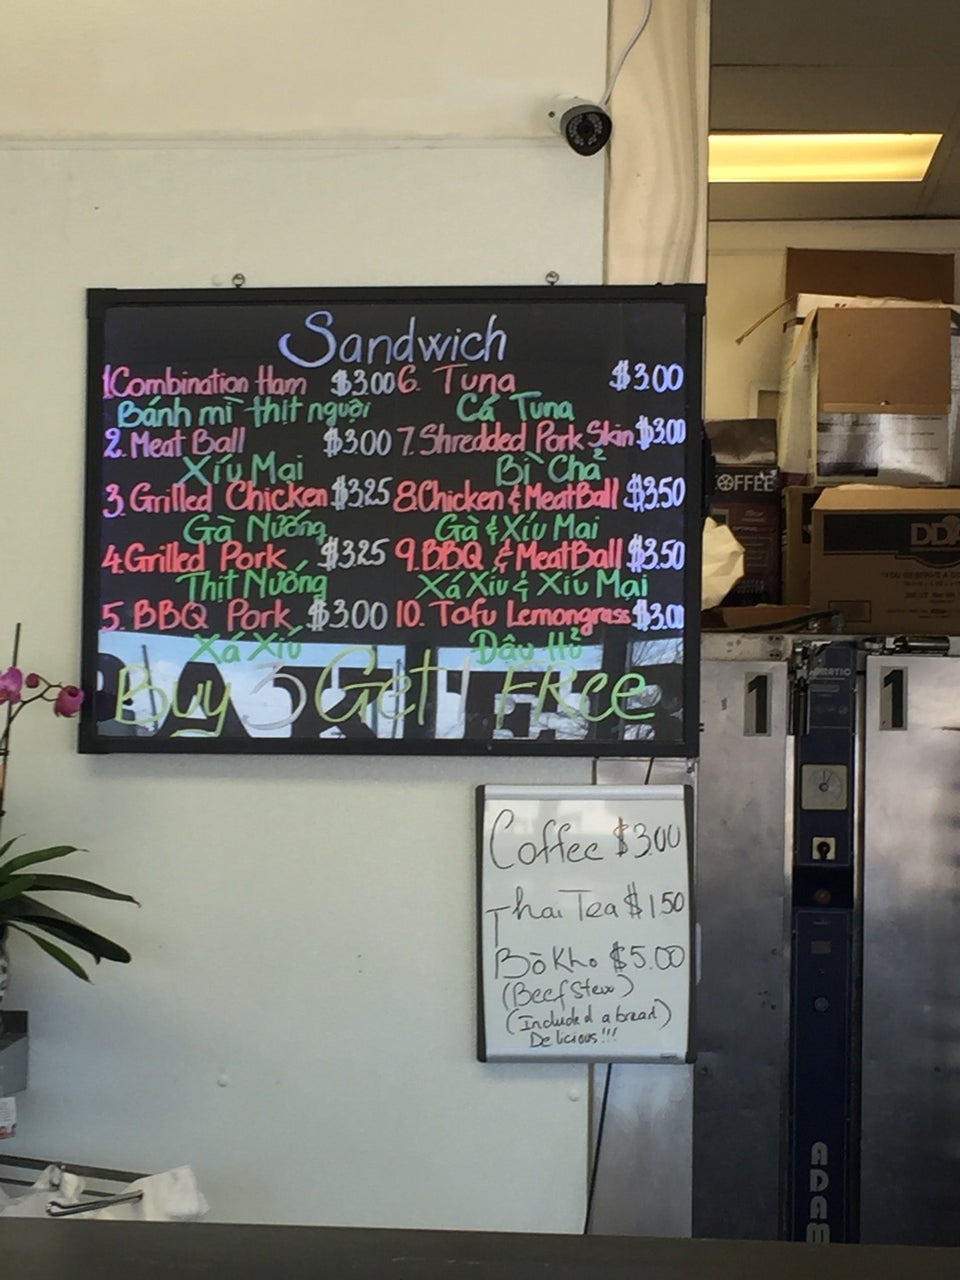 Sandwich
1. Combination Ham $3.00
Bánh mì thịt nguội
2. Meat Ball $3.00
Xíu Mại
3. Grilled Chicken $3.25
Gà Nướng
4. Grilled Pork $3.25
Thịt Nướng
5. BBQ Pork $3.00
Xá Xíú
6. Tuna $3.00
Cá Tuna
7. Shredded Pork Skin $3.00
Bì Chả
8. Chicken & MeatBall $3.50
Gà & Xíu Mai
9. BBQ & MeatBall $3.50
Xá Xíu & Xíu Mại
10. Tofu Lemongrass $3.00
Đậu Hủ
Buy 3 Get 1 FRee
Coffee $3.00
Thai Tea $1.50
Bò Kho $5.00
(Beef Stew)
(Included a bread)
Delicious!!!
COFFEE
1
1
ADAM